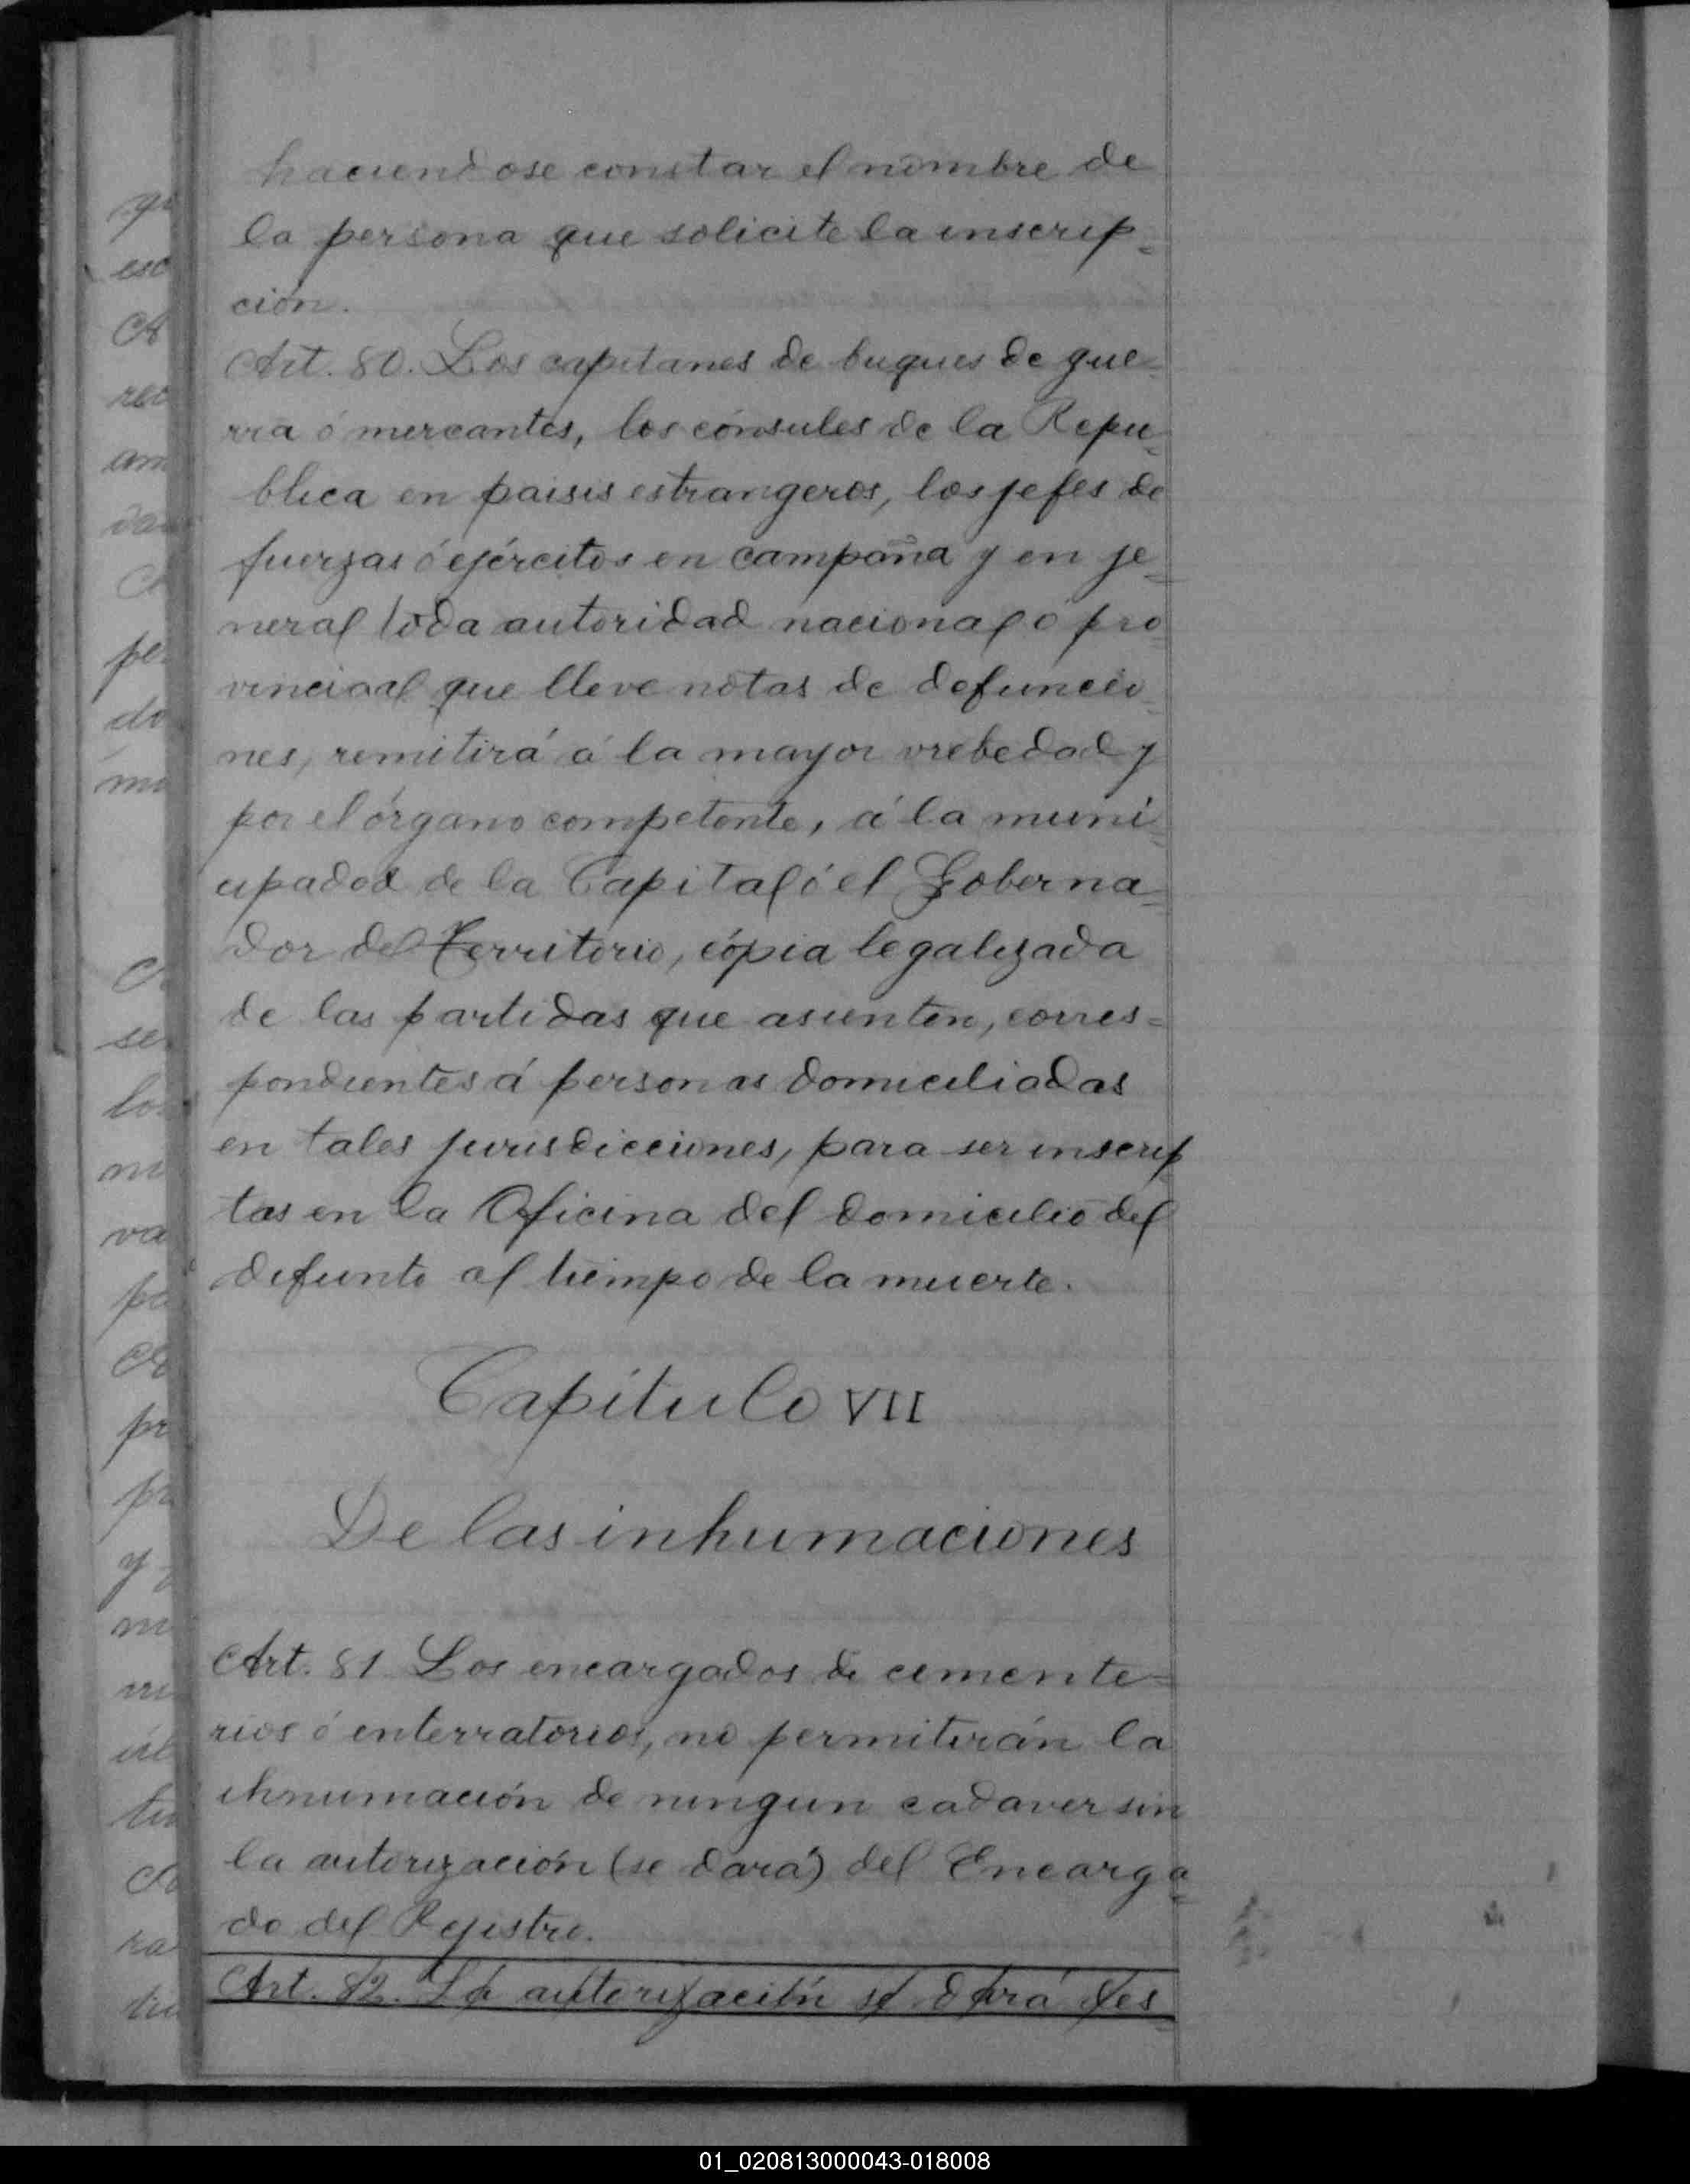 haciendose constar el nombre de
la persona que solicite la inscrip=
ción.
Art. 80. Los capitanes de buques de gue=
rra ó mercantes, los cónsules de la Repu=
blica en paises estrangeros, los jefes de
fuerzas ó ejércitos en campaña y en je=
neral toda autoridad nacional ó pro
vincial que lleve notas de defuncio=
nes, remitirá á la mayor vrebedad y
por el órgano competente, á la muni=
cipadad de la Capital ó el Goberna=
dor del Territorio, cópia legalizada
de las partidas que asienten, corres=
pondientes á personas domiciliadas
en tales jurisdicciones, para ser inscrip
tas en la Oficina del domicilio del
difunto al tiempo de la muerte.
Capítulo VII
De las inhumaciones
Art. 81 Los encargados de cemente=
rios ó enterratorios, no permitirán la
ihnumación de ningun cadaver sin
la autorización (se dará) del Encarga=
do del Rejistro.
Art. 82. La autorización se dará des=
01_020813000043-018008